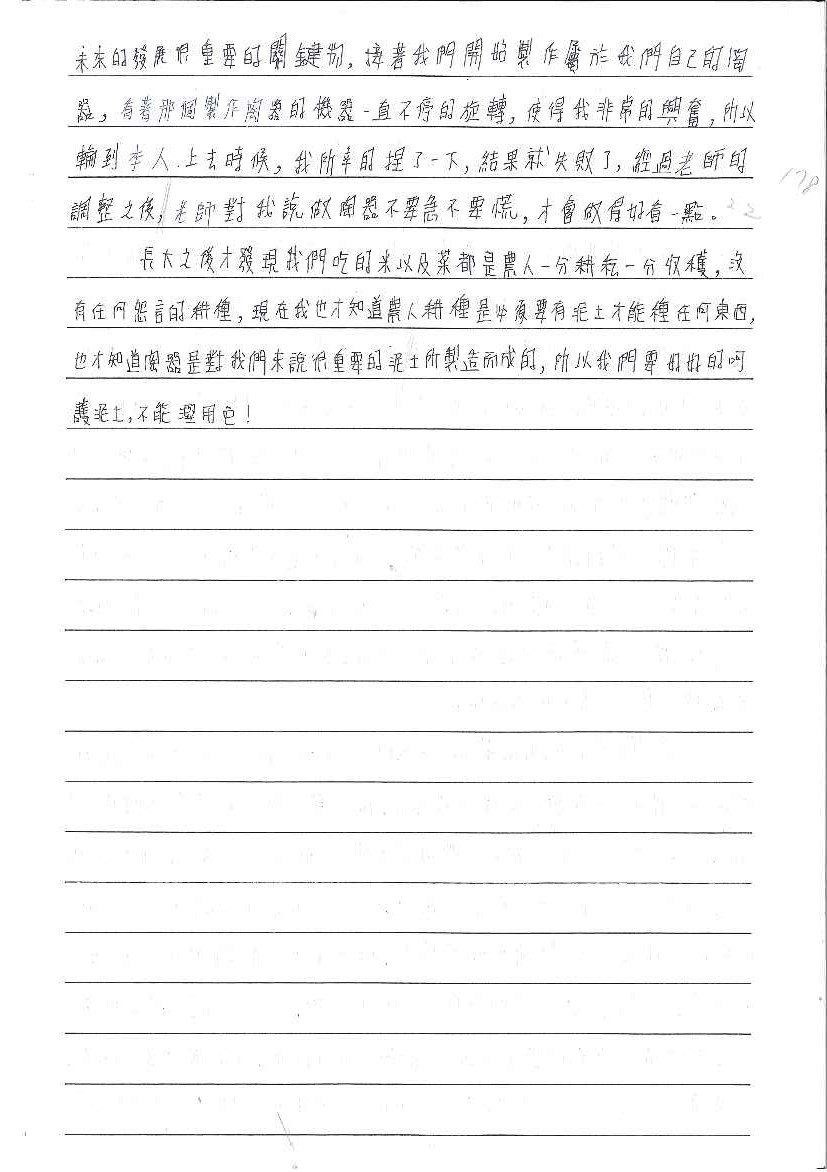 未來的發展很重要的關鍵物,接著我們開始製作屬於我們自己的陶
器,看著那個製作陶器的機器一直不停的旋轉,使得我非常的興奮,所以
輪到本人上去時候,我所幸的捏了一下,結果就失敗了,經過老師的
調整之後,老師對我說做陶器不要急不要慌,才會做得好看一點。
長大之後才發現我們吃的米以及菜都是農人一分耕耘一分收穫,沒
有任何怨言的耕種,現在我也才知道農人耕種是必須要有泥土才能種任何東西,
也才知道陶器是對我們來說很重要的泥土所製造而成的,所以我們要好好的呵
護泥土,不能濫用它!
178
22